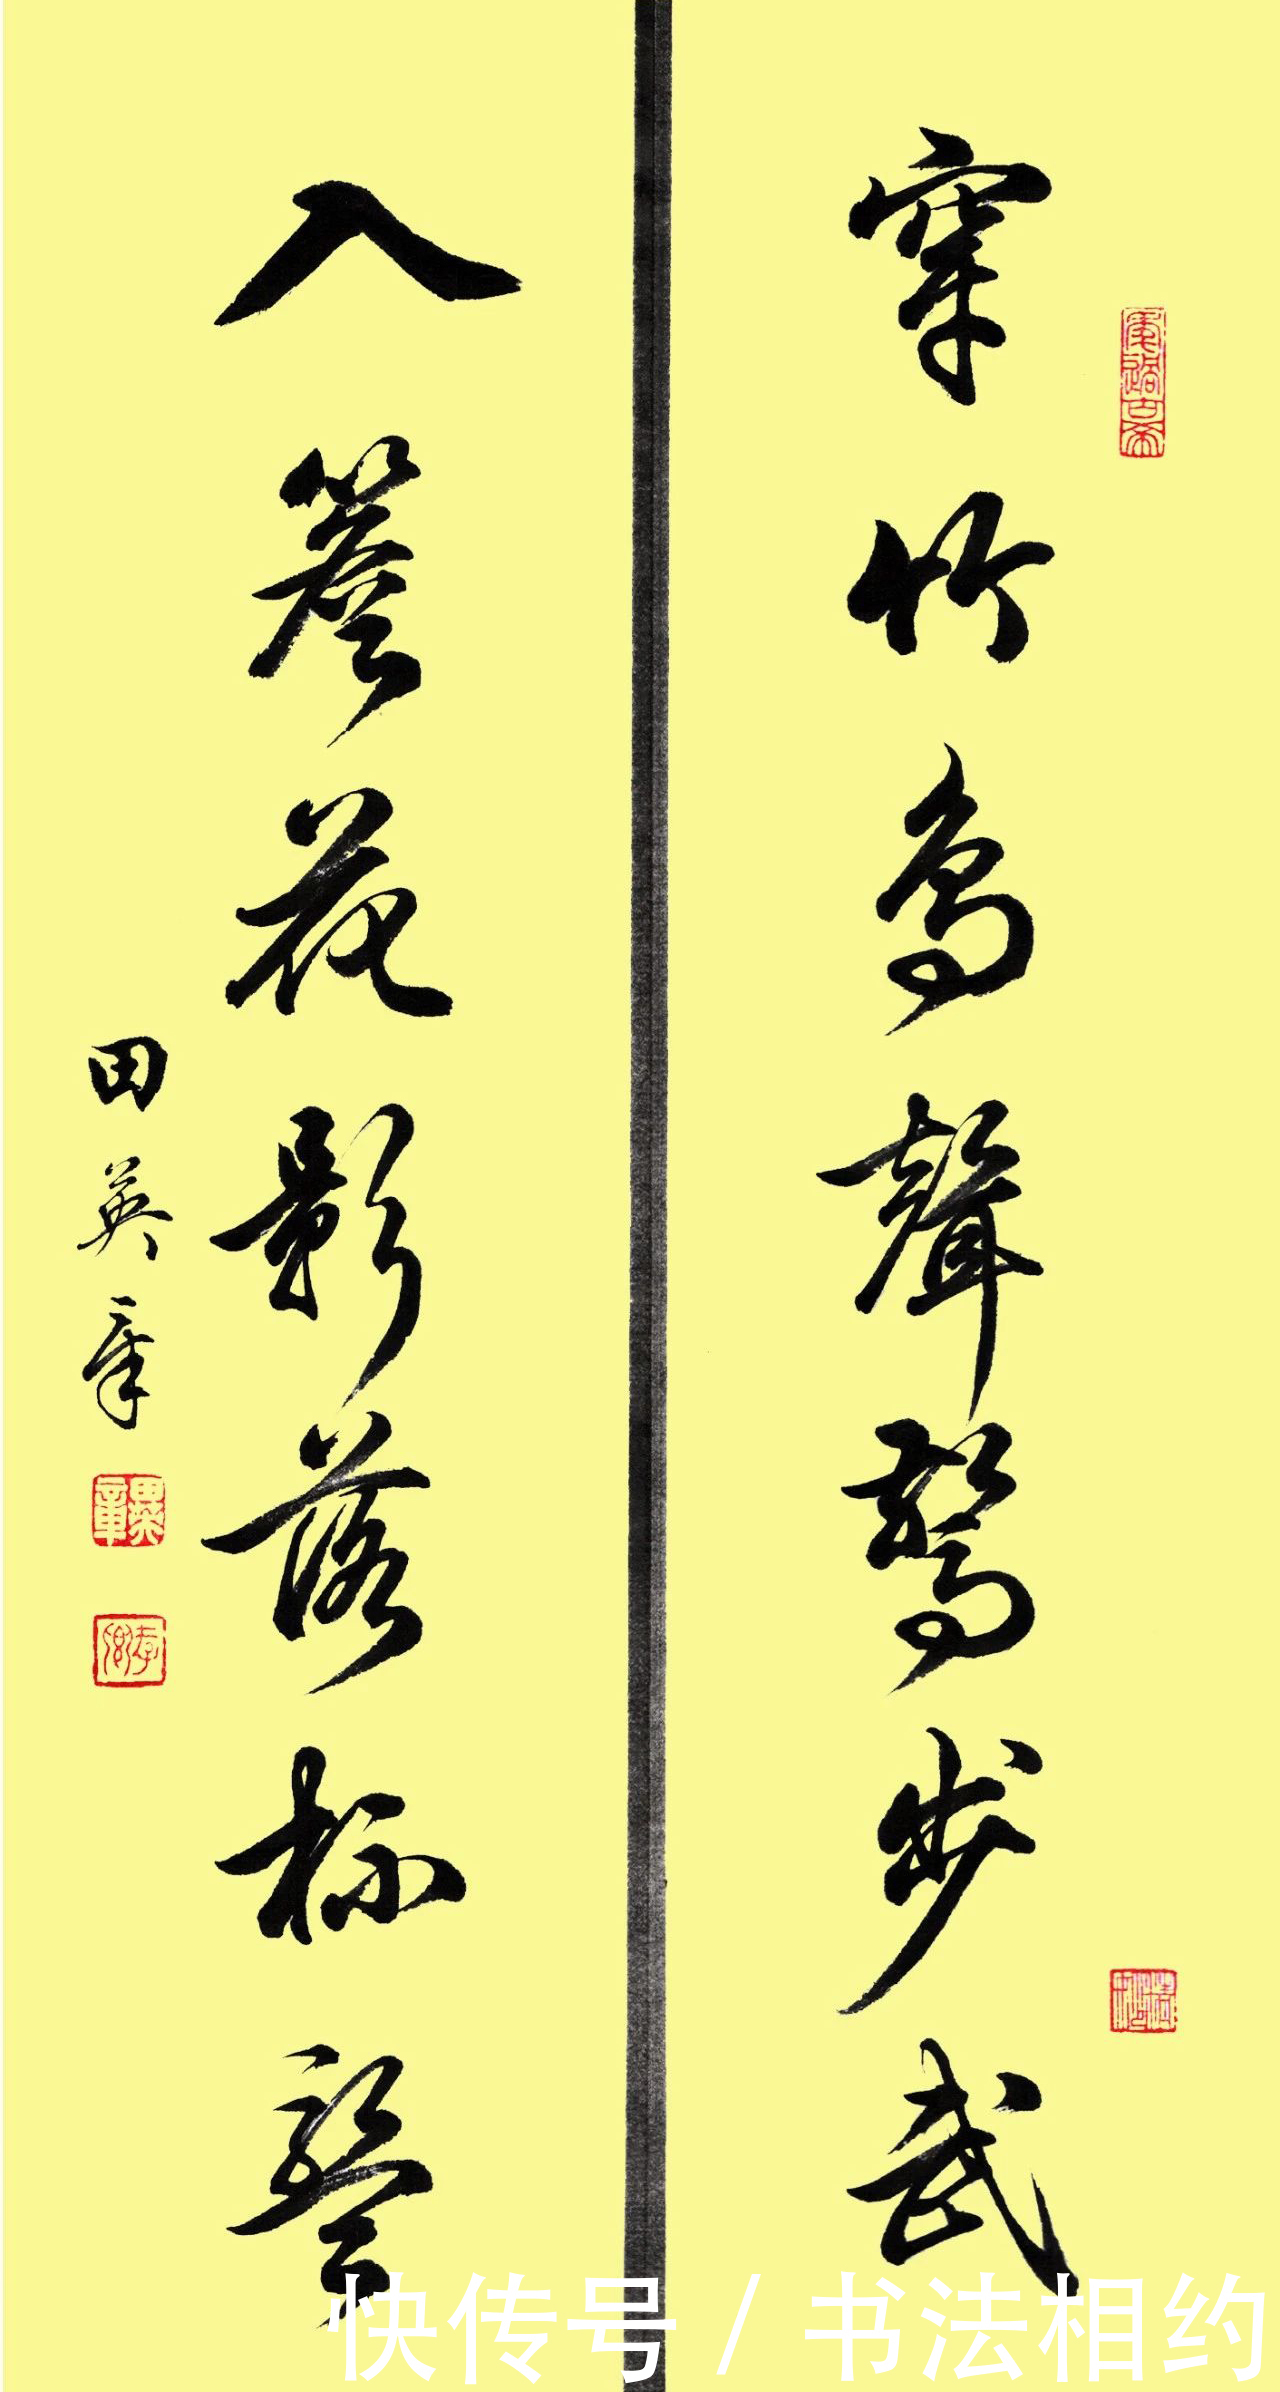 穿竹鳥聲驚步武
入簷花影落杯盤
田英章
快传号 / 书法相约